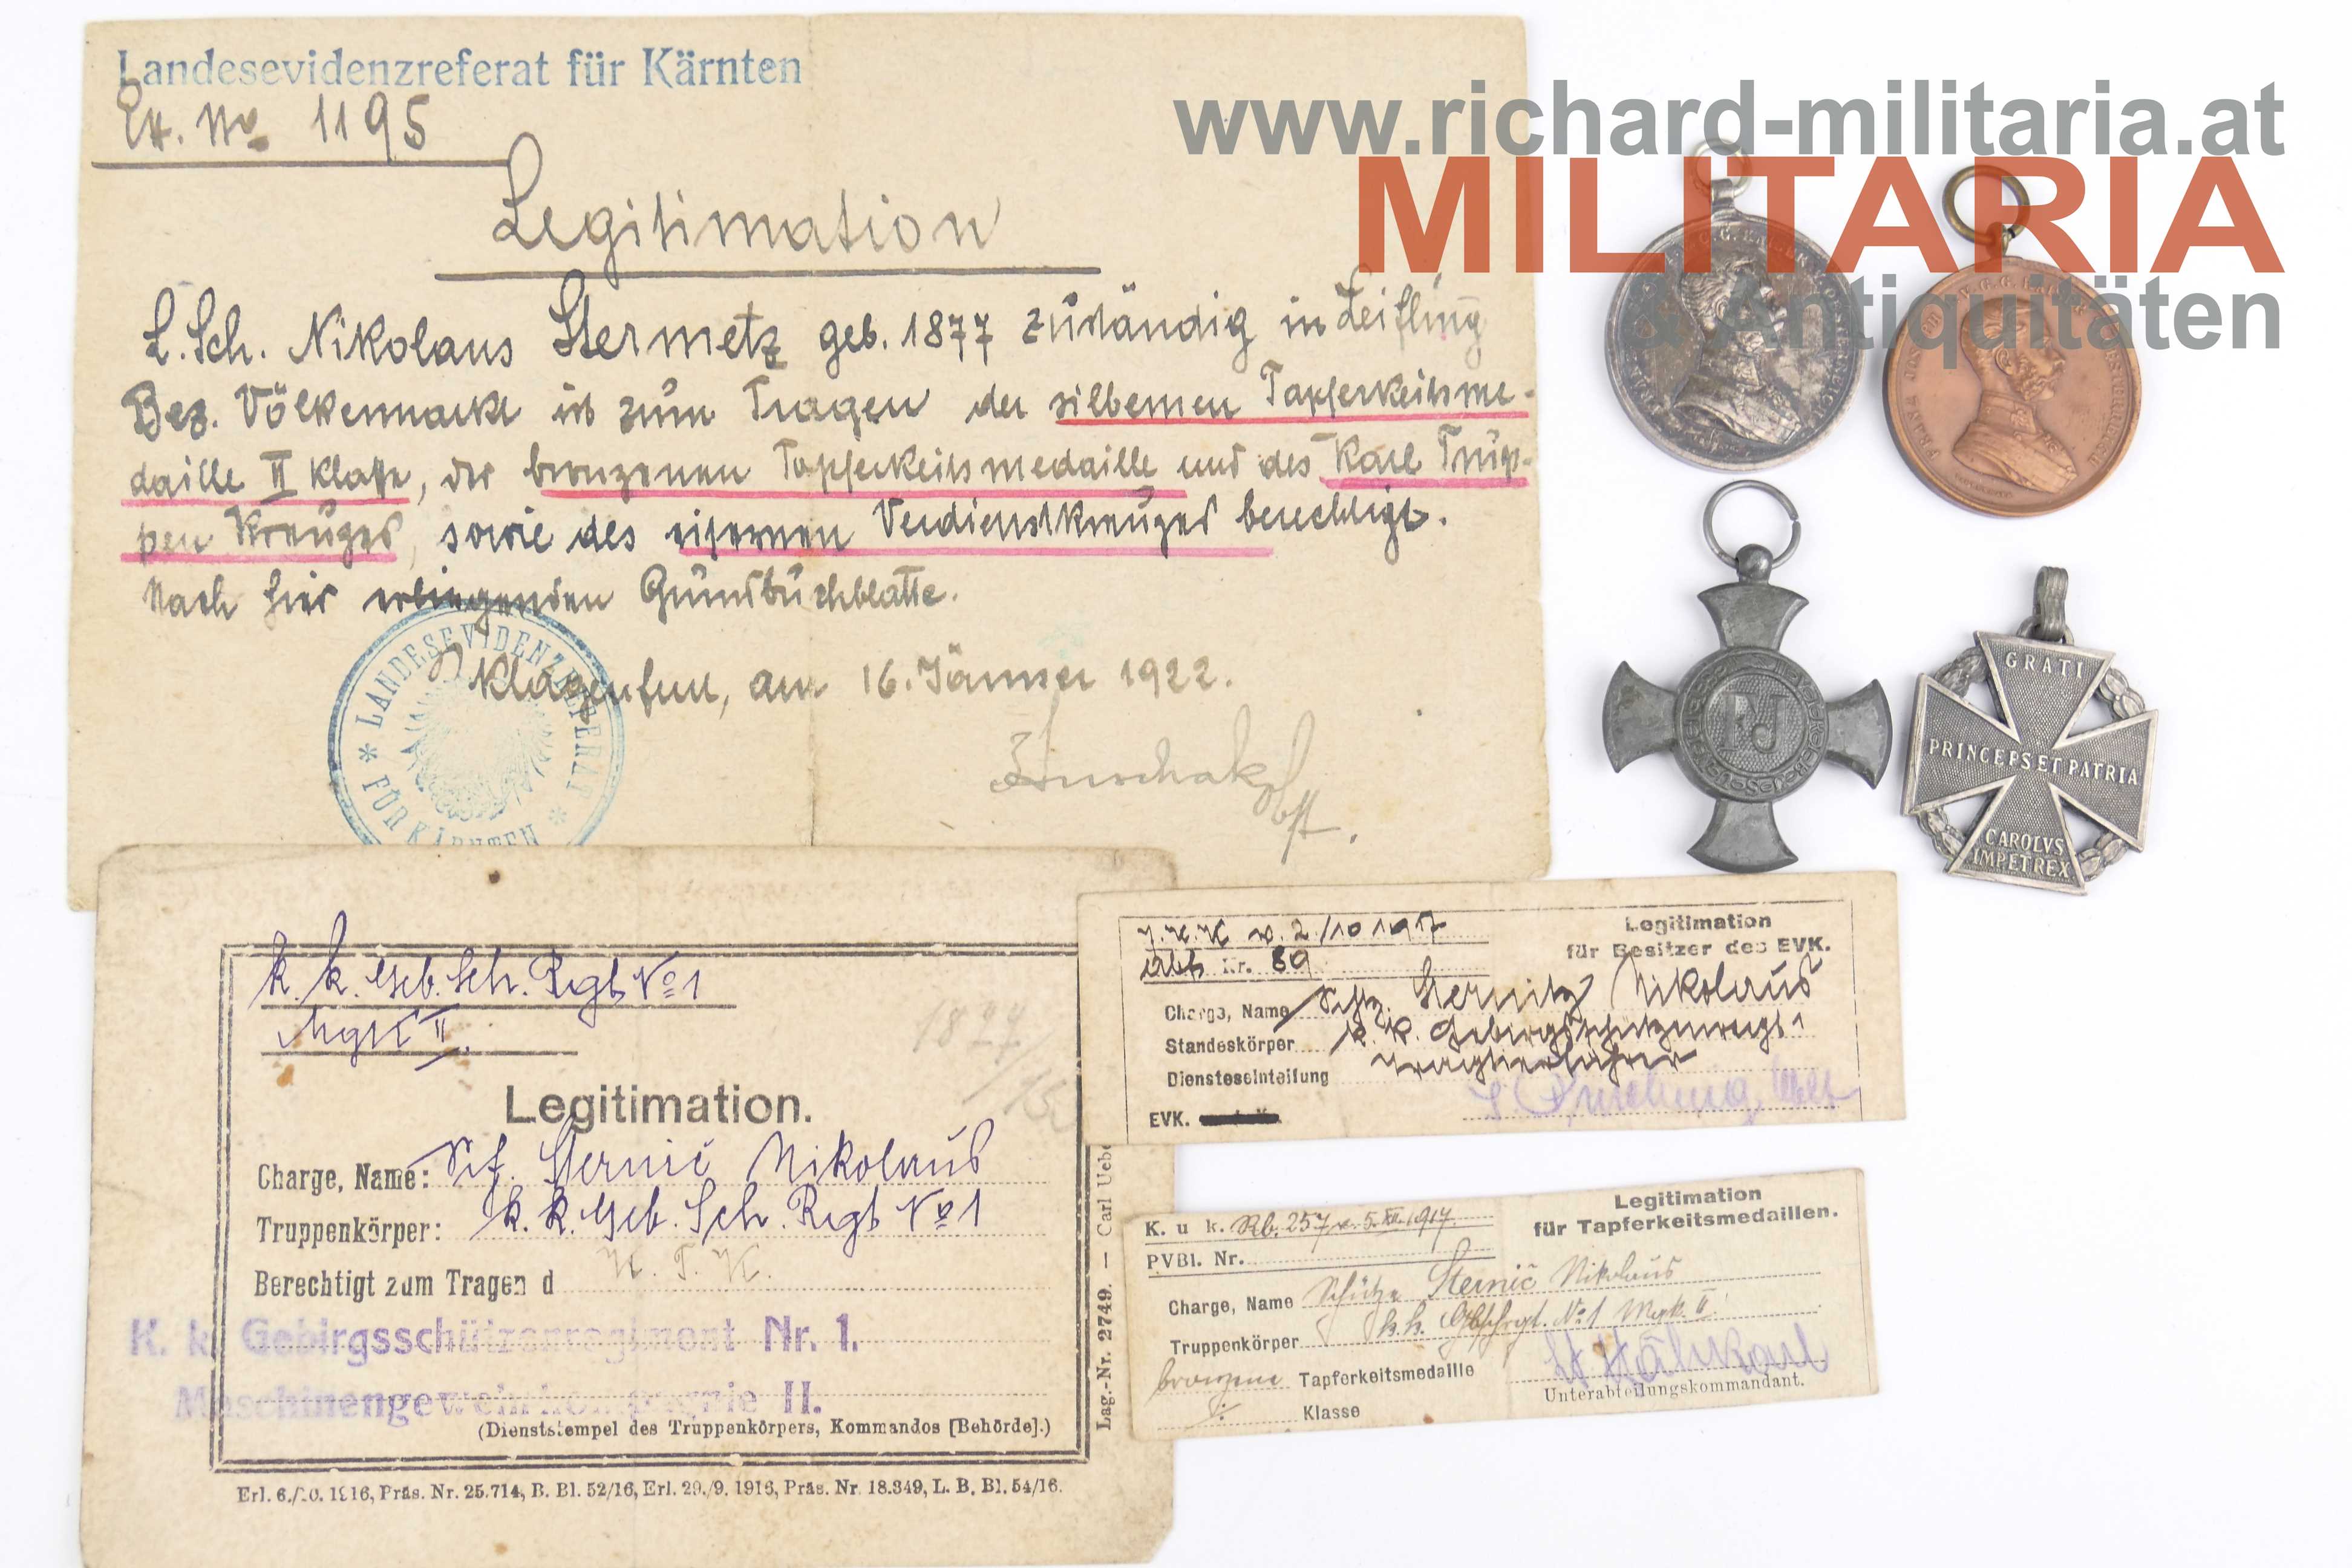 www.richard-militaria.at
MILITARIA
& Antiquitäten
Landesevidenzreferat für Kärnten
Ex. No 1195
Legitimation
L. Sch. Nikolaus Stermetz geb. 1877 zuständig in Leifling
Bez. Völkermarkt ist zum Tragen der silbernen Tapferkeitsme-
daille II Klasse, der bronzenen Tapferkeitsmedaille und des Karl Trup-
pen Kreuzes, sowie des eisernen Verdienstkreuzes berechtigt.
Nach hier erliegenden Grundbuchblatte.
Klagenfurt, am 16. Jänner 1922.
Obst.
* LANDESEVIDENZREFERAT * FÜR KÄRNTEN
k. k. Geb. Sch. Regt No 1
MgK II.
Legitimation.
Charge, Name: Sternič Nikolaus
Truppenkörper: k. k. Geb. Sch. Regt No 1
Berechtigt zum Tragen d K. T. K.
K. k. Gebirgsschützenregiment Nr. 1.
Maschinengewehrkompagnie II.
(Dienststempel des Truppenkörpers, Kommandos [Behörde].)
Erl. 6./10. 1916, Präs. Nr. 25.714, B. Bl. 52/16, Erl. 29./9. 1916, Präs. Nr. 18.349, L. B. Bl. 54/16.
Lag.-Nr. 2749. — Carl Uebe
1877
v. 2/10 1917
Nr. 89
Legitimation
für Besitzer des EVK.
Charge, Name Nikolaus
Standeskörper k. k. Gebirgsschützenregt 1
Diensteseinteilung Tragtierführer
EVK.
K. u k. Kb. 257 v. 5. XII. 1917.
PVBl. Nr.
Legitimation
für Tapferkeitsmedaillen.
Charge, Name Schütze Sternič Nikolaus
Truppenkörper k. k. Gbschrgt. No 1 Mgk. II.
bronzene Tapferkeitsmedaille
Klasse
Unterabteilungskommandant.
GRATI
PRINCEPS ET PATRIA
CAROLVS
IMP ET REX
FJ